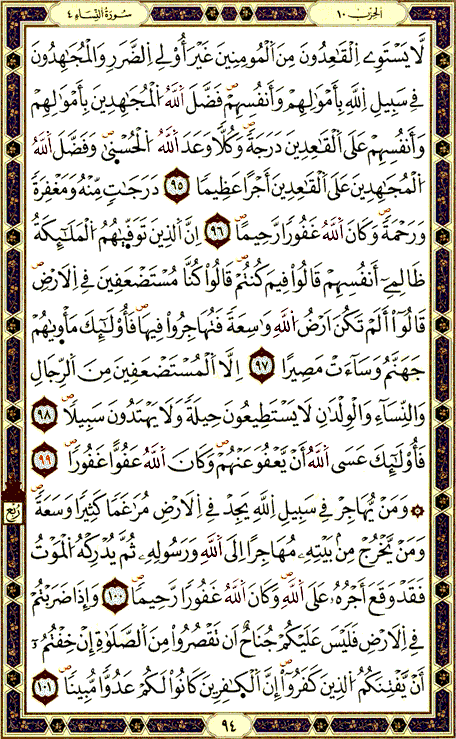 الحزب ١٠
سورة النساء ٤
لَّا يَسْتَوِے اِ۬لْقَٰعِدُونَ مِنَ اَ۬لْمُومِنِينَ غَيْرَ أُوْلِے اِ۬لضَّرَرِ وَالْمُجَٰهِدُونَ
فِے سَبِيلِ اِ۬للَّهِ بِأَمْوَٰلِهِمْ وَأَنفُسِهِمْ فَضَّلَ اَ۬للَّهُ اُ۬لْمُجَٰهِدِينَ بِأَمْوَٰلِهِمْ
وَأَنفُسِهِمْ عَلَى اَ۬لْقَٰعِدِينَ دَرَجَةً وَكُلّاً وَعَدَ اَ۬للَّهُ اُ۬لْحُسْن۪يٰ وَفَضَّلَ اَ۬للَّهُ
اُ۬لْمُجَٰهِدِينَ عَلَى اَ۬لْقَٰعِدِينَ أَجْراً عَظِيماً ٩٥ دَرَجَٰتٍ مِّنْهُ وَمَغْفِرَةً
وَرَحْمَةً وَكَانَ اَ۬للَّهُ غَفُوراً رَّحِيماً ٩٦ اِنَّ اَ۬لذِينَ تَوَفّ۪يٰهُمُ اُ۬لْمَلَٰٓئِكَةُ
ظَالِمِےٓ أَنفُسِهِمْ قَالُواْ فِيمَ كُنتُمْ قَالُواْ كُنَّا مُسْتَضْعَفِينَ فِے اِ۬لَارْضِ
قَالُوٓاْ أَلَمْ تَكُنَ اَرْضُ اُ۬للَّهِ وَٰسِعَةً فَتُهَاجِرُواْ فِيهَا فَأُوْلَٰٓئِكَ مَأْو۪يٰهُمْ
جَهَنَّمُ وَسَآءَتْ مَصِيراً ٩٧ اِلَّا اَ۬لْمُسْتَضْعَفِينَ مِنَ اَ۬لرِّجَالِ
وَالنِّسَآءِ وَالْوِلْدَٰنِ لَا يَسْتَطِيعُونَ حِيلَةً وَلَا يَهْتَدُونَ سَبِيلاً ٩٨
فَأُوْلَٰٓئِكَ عَسَى اَ۬للَّهُ أَنْ يَّعْفُوَ عَنْهُمْ وَكَانَ اَ۬للَّهُ عَفُوّاً غَفُوراً ٩٩
۞ وَمَنْ يُّهَاجِرْ فِے سَبِيلِ اِ۬للَّهِ يَجِدْ فِے اِ۬لَارْضِ مُرَٰغَماً كَثِيراً وَسَعَةً
وَمَنْ يَّخْرُجْ مِنۢ بَيْتِهِۦ مُهَاجِراً اِلَى اَ۬للَّهِ وَرَسُولِهِۦ ثُمَّ يُدْرِكْهُ اُ۬لْمَوْتُ
فَقَدْ وَقَعَ أَجْرُهُۥ عَلَى اَ۬للَّهِ وَكَانَ اَ۬للَّهُ غَفُوراً رَّحِيماً ١٠٠ وَإِذَا ضَرَبْتُمْ
فِے اِ۬لَارْضِ فَلَيْسَ عَلَيْكُمْ جُنَاحٌ اَن تَقْصُرُواْ مِنَ اَ۬لصَّلَوٰةِ إِنْ خِفْتُمُۥٓ
أَنْ يَّفْتِنَكُمُ اُ۬لذِينَ كَفَرُوٓاْ إِنَّ اَ۬لْكٰ۪فِرِينَ كَانُواْ لَكُمْ عَدُوّاً مُّبِيناً ١٠١
ربع
٩٤